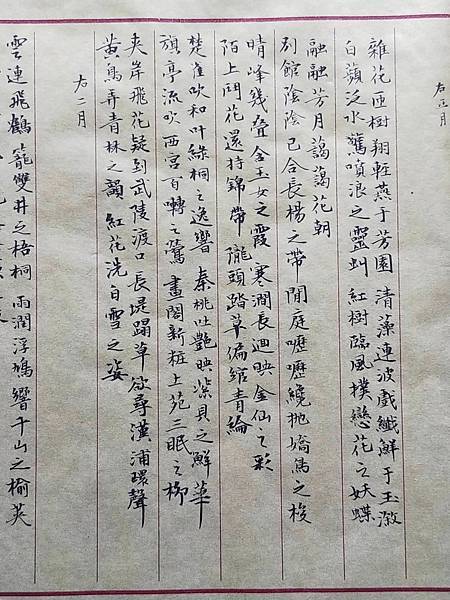 右正月
雜花匝樹翔輕燕于芳園 清藻連波戲纖鮮于玉潊
白蘋泛水驚噴浪之靈虯 紅樹臨風撲戀花之妖蝶
融融芳月藹藹花朝
別館陰陰已合長楊之帶 閒庭嚦嚦纔拋嬌鳥之梭
晴峰幾叠含玉女之霞 寒澗長迴映金仙之彩
陌上鬥花還持錦帶 隴頭踏草偏綰青綸
楚雀吹和叶綠桐之逸響 秦桃吐艷映紫貝之鮮華
旗亭流吹西宮百囀之鶯 畫閣新粧上苑三眠之柳
夾岸飛花疑到武陵渡口 長堤蹋草欲尋漢浦環聲
黃鳥弄青林之韻 紅花洗白雪之姿
右二月
雲連飛鶴籠雙井之梧桐 雨潤浮鳩響千山之榆莢